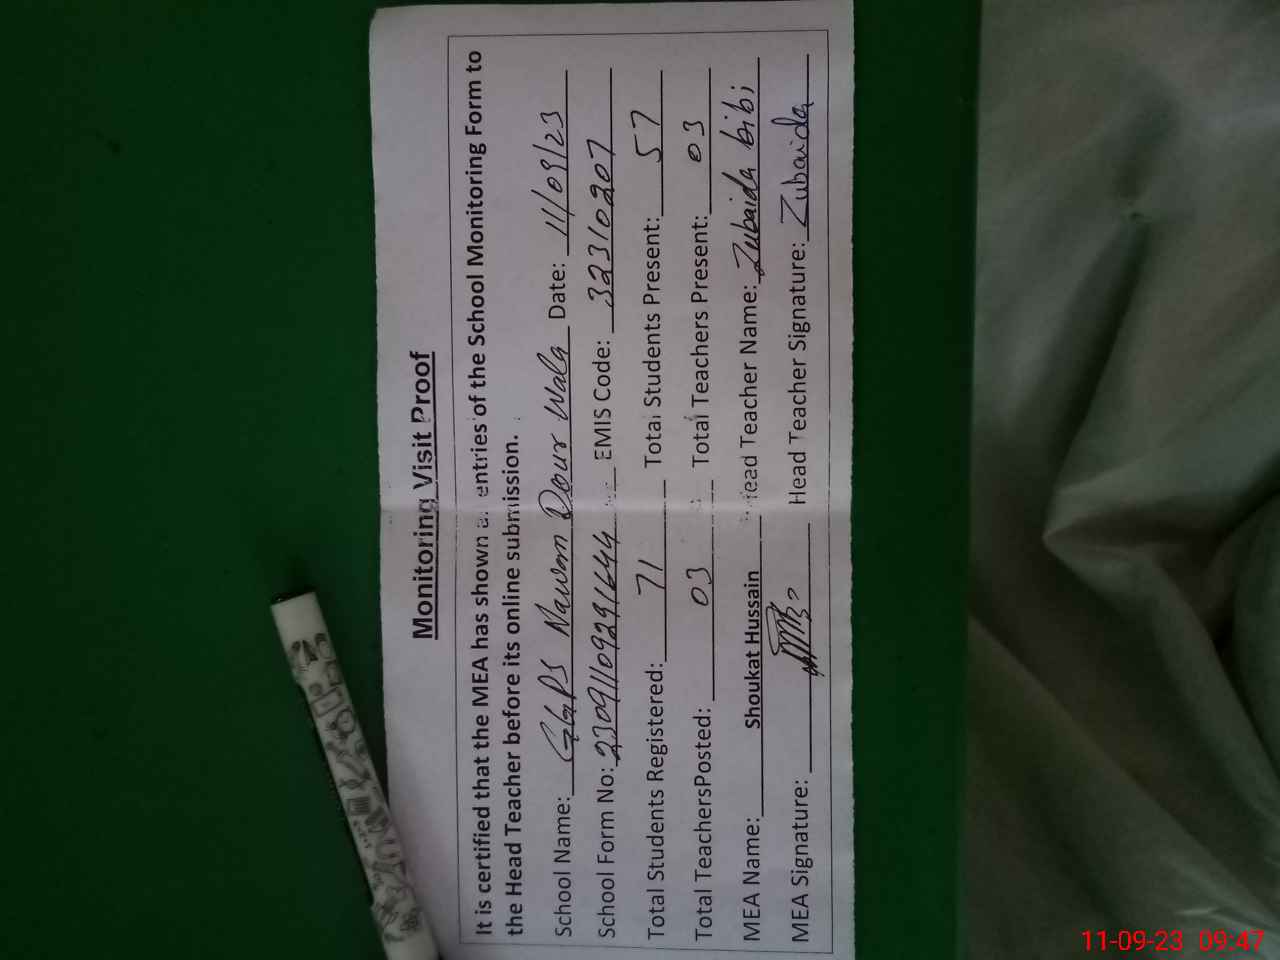 Monitoring Visit Proof
It is certified that the MEA has shown all entries of the School Monitoring Form to
the Head Teacher before its online submission.
School Name: GGPS Nawan Dour Wala Date: 11/09/23
School Form No: 23091109291644 EMIS Code: 32310207
Total Students Registered: 71 Total Students Present: 57
Total TeachersPosted: 03 Total Teachers Present: 03
MEA Name: Shoukat Hussain Head Teacher Name: Zubaida bibi
MEA Signature: Head Teacher Signature: Zubaida
11-09-23 09:47